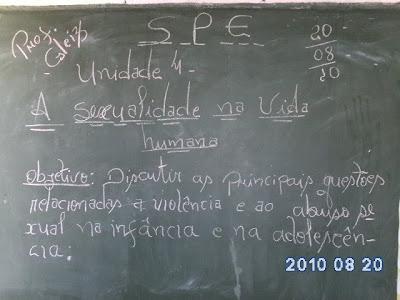 S P E
20
08
10
Unidade 4
A sexualidade na Vida
humana
Objetivo: Discutir as principais questões
relacionadas à violência e ao abuso se
xual na infância e na adolescên-
cia.
2010 08 20